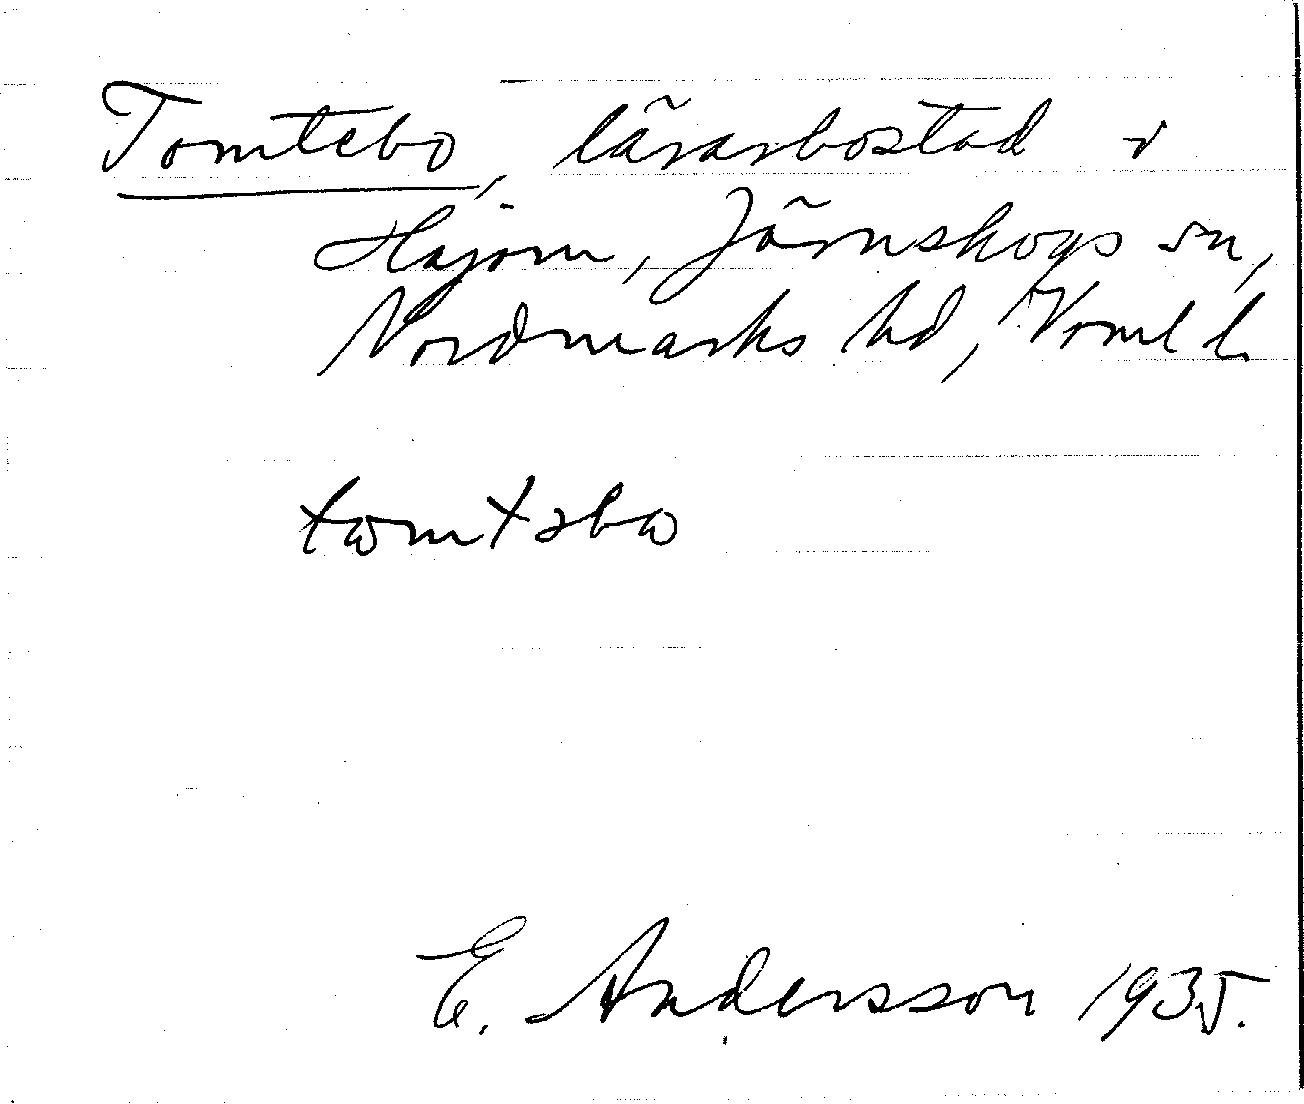 Tomtebo, lärarbostad i
Hajom, Järnskogs sn,
Nordmarks hd, Verml l.
tomtəbo
E. Andersson 1935.